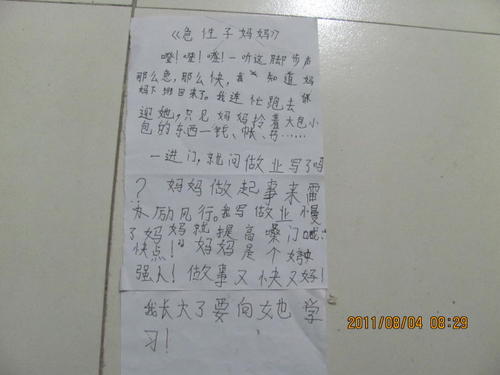 《急性子妈妈》
噔！噔！噔！一听这脚步声
那么急，那么快，我 知道妈
妈下班回来了。我连忙跑去
迎她，只见妈妈拎着大包小
包的东西一钱、帐、书……
一进门，就问做业写了吗
？妈妈做起事来雷
励风行。我写做业慢
了妈妈就提高嗓门喊：“
快点！”妈妈是个女
强人！做事又快又好！
我长大了要向她学
习！
2011/08/04 08:29